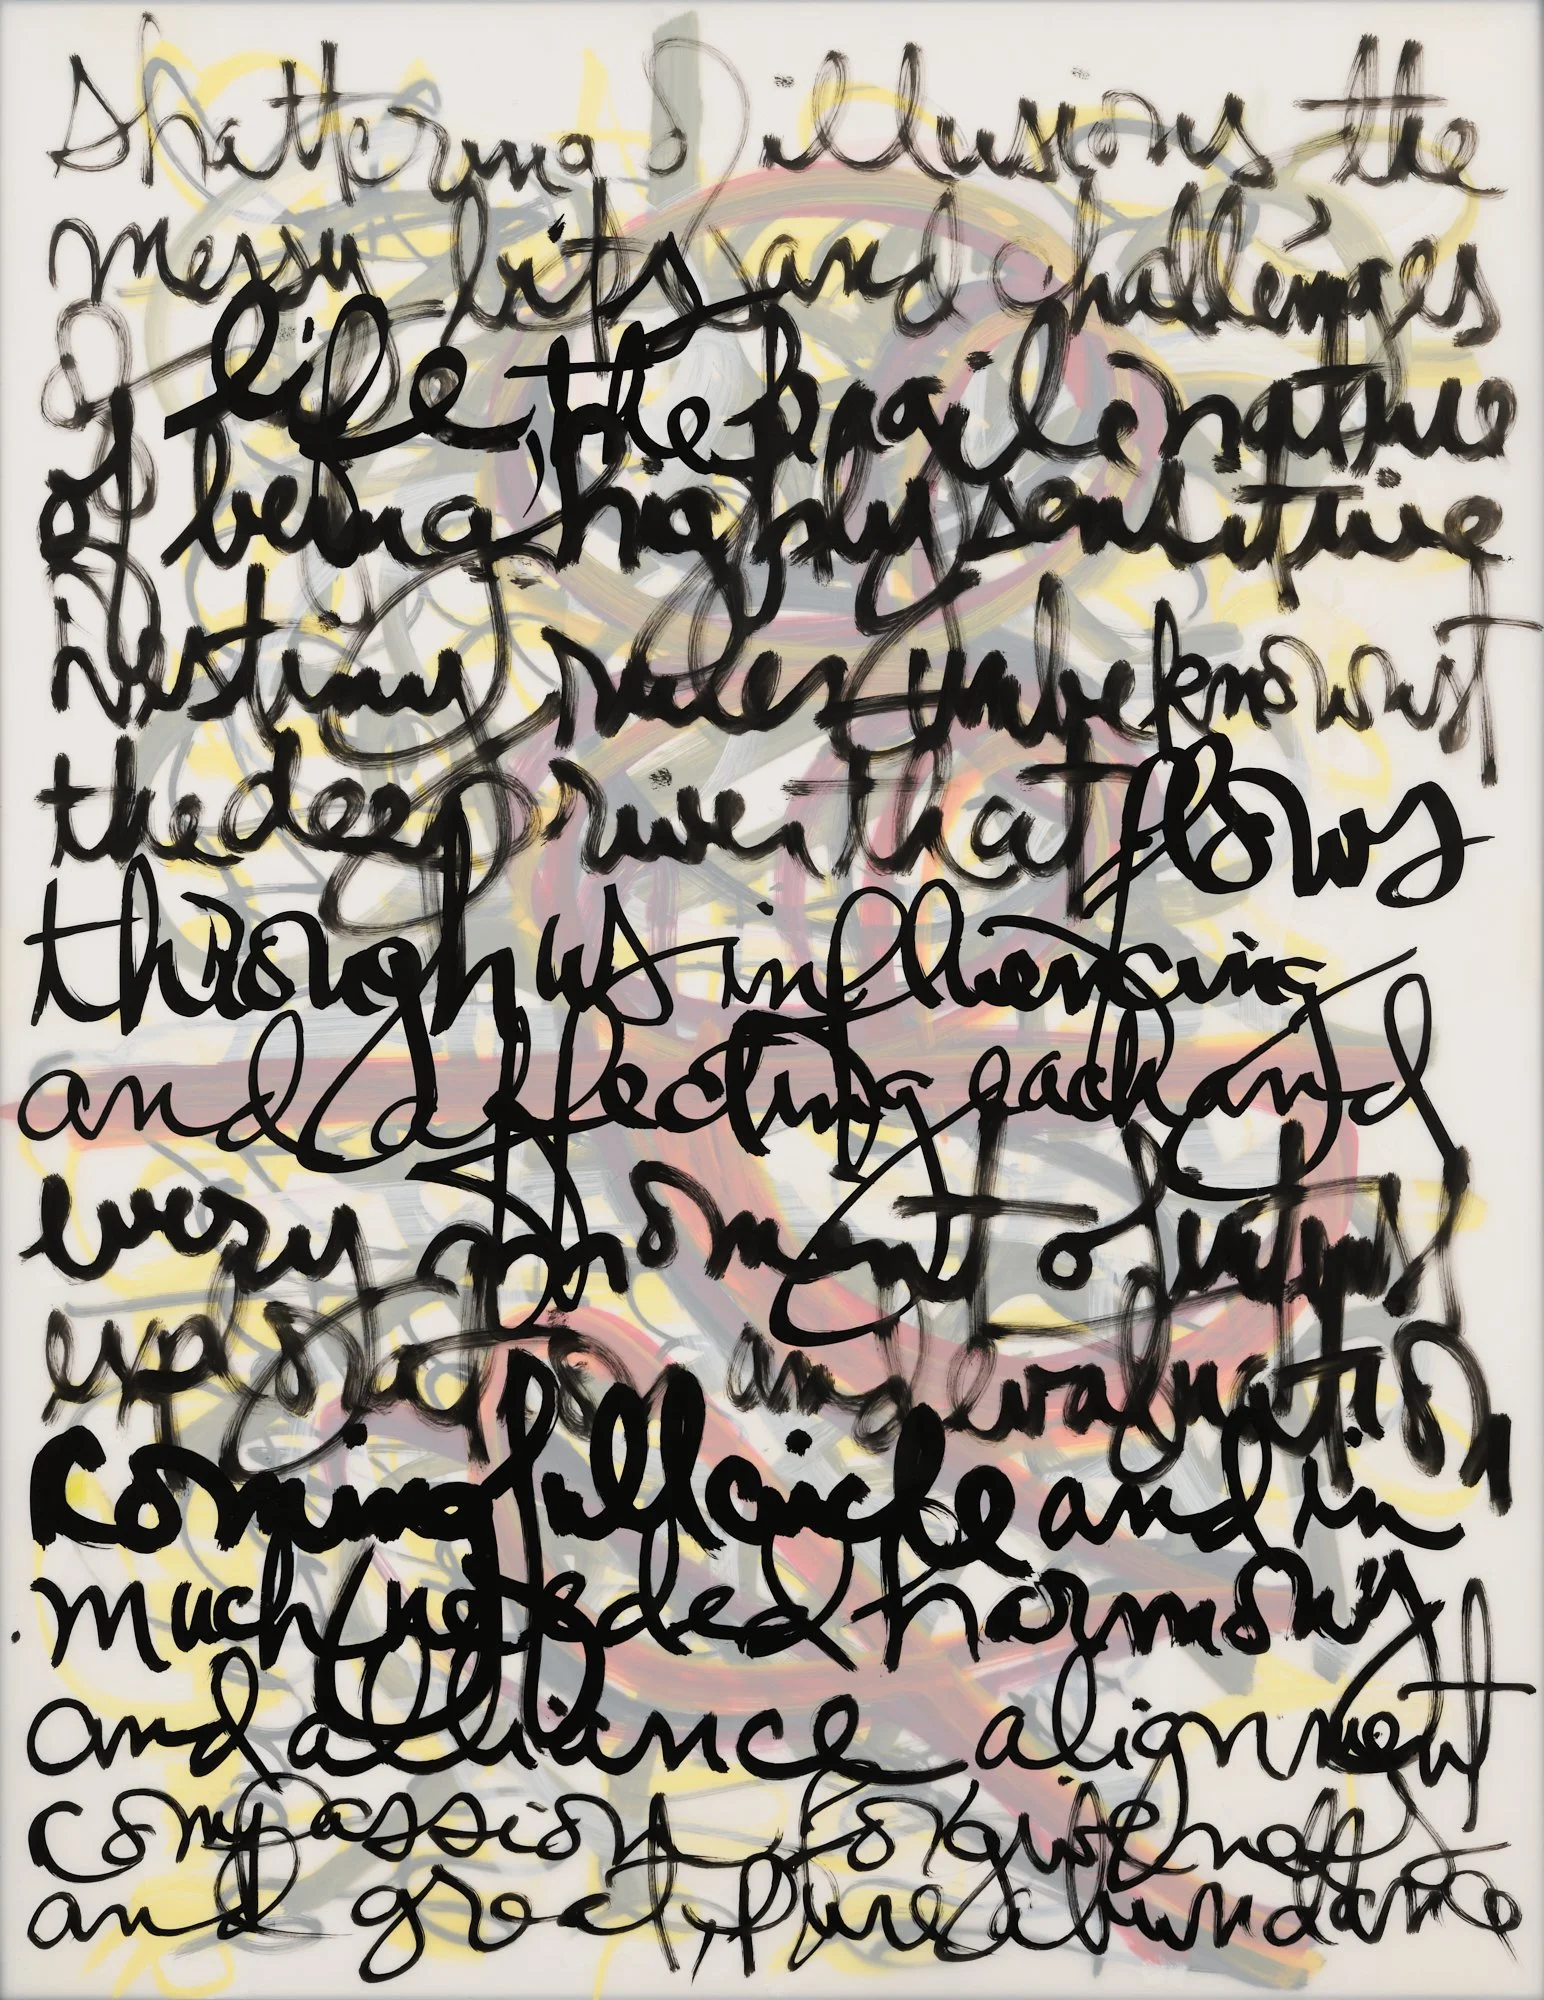 shattering of illusions the
messy bits and challenges
of life, the fragile nature
of being highly sensitive
destiny rules unbeknownst
the deep river that flows
through us influencing
and affecting each and
every moment of
exploration and evaluation
coming full circle and in
much needed harmony
and alliance alignment
compassion, forgiveness
and great, pure abundance